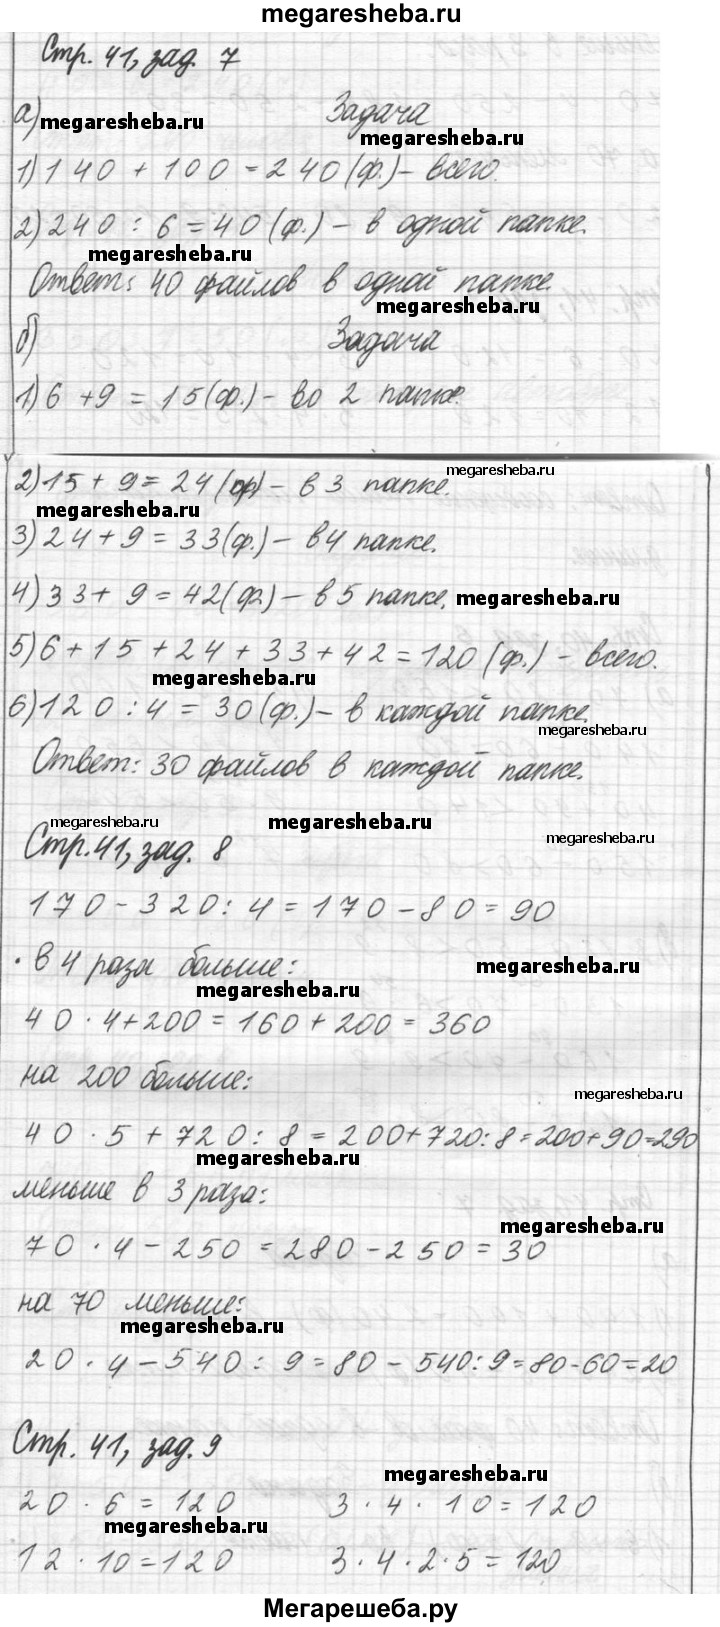 megaresheba.ru
Стр. 41, зад. 7
а) Задача
megaresheba.ru
megaresheba.ru
1) 140 + 100 = 240 (ф.) - всего.
2) 240 : 6 = 40 (ф.) - в одной папке.
megaresheba.ru
Ответ: 40 файлов в одной папке.
megaresheba.ru
б) Задача
1) 6 + 9 = 15 (ф.) - во 2 папке.
megaresheba.ru
2) 15 + 9 = 24 (ф) - в 3 папке.
megaresheba.ru
3) 24 + 9 = 33 (ф.) - в 4 папке.
4) 33 + 9 = 42 (ф.) - в 5 папке.
megaresheba.ru
5) 6 + 15 + 24 + 33 + 42 = 120 (ф.) - всего.
megaresheba.ru
6) 120 : 4 = 30 (ф.) - в каждой папке.
megaresheba.ru
Ответ: 30 файлов в каждой папке.
megaresheba.ru
megaresheba.ru
megaresheba.ru
Стр. 41, зад. 8
170 - 320 : 4 = 170 - 80 = 90
· в 4 раза больше:
megaresheba.ru
megaresheba.ru
40 · 4 + 200 = 160 + 200 = 360
на 200 больше:
megaresheba.ru
40 · 5 + 720 : 8 = 200 + 720 : 8 = 200 + 90 = 290
megaresheba.ru
меньше в 3 раза:
megaresheba.ru
70 · 4 - 250 = 280 - 250 = 30
на 70 меньше:
megaresheba.ru
20 · 4 - 540 : 9 = 80 - 540 : 9 = 80 - 60 = 20
Стр. 41, зад. 9
megaresheba.ru
20 · 6 = 120 3 · 4 · 10 = 120
megaresheba.ru
12 · 10 = 120 3 · 4 · 2 · 5 = 120
Мегарешеба.ру